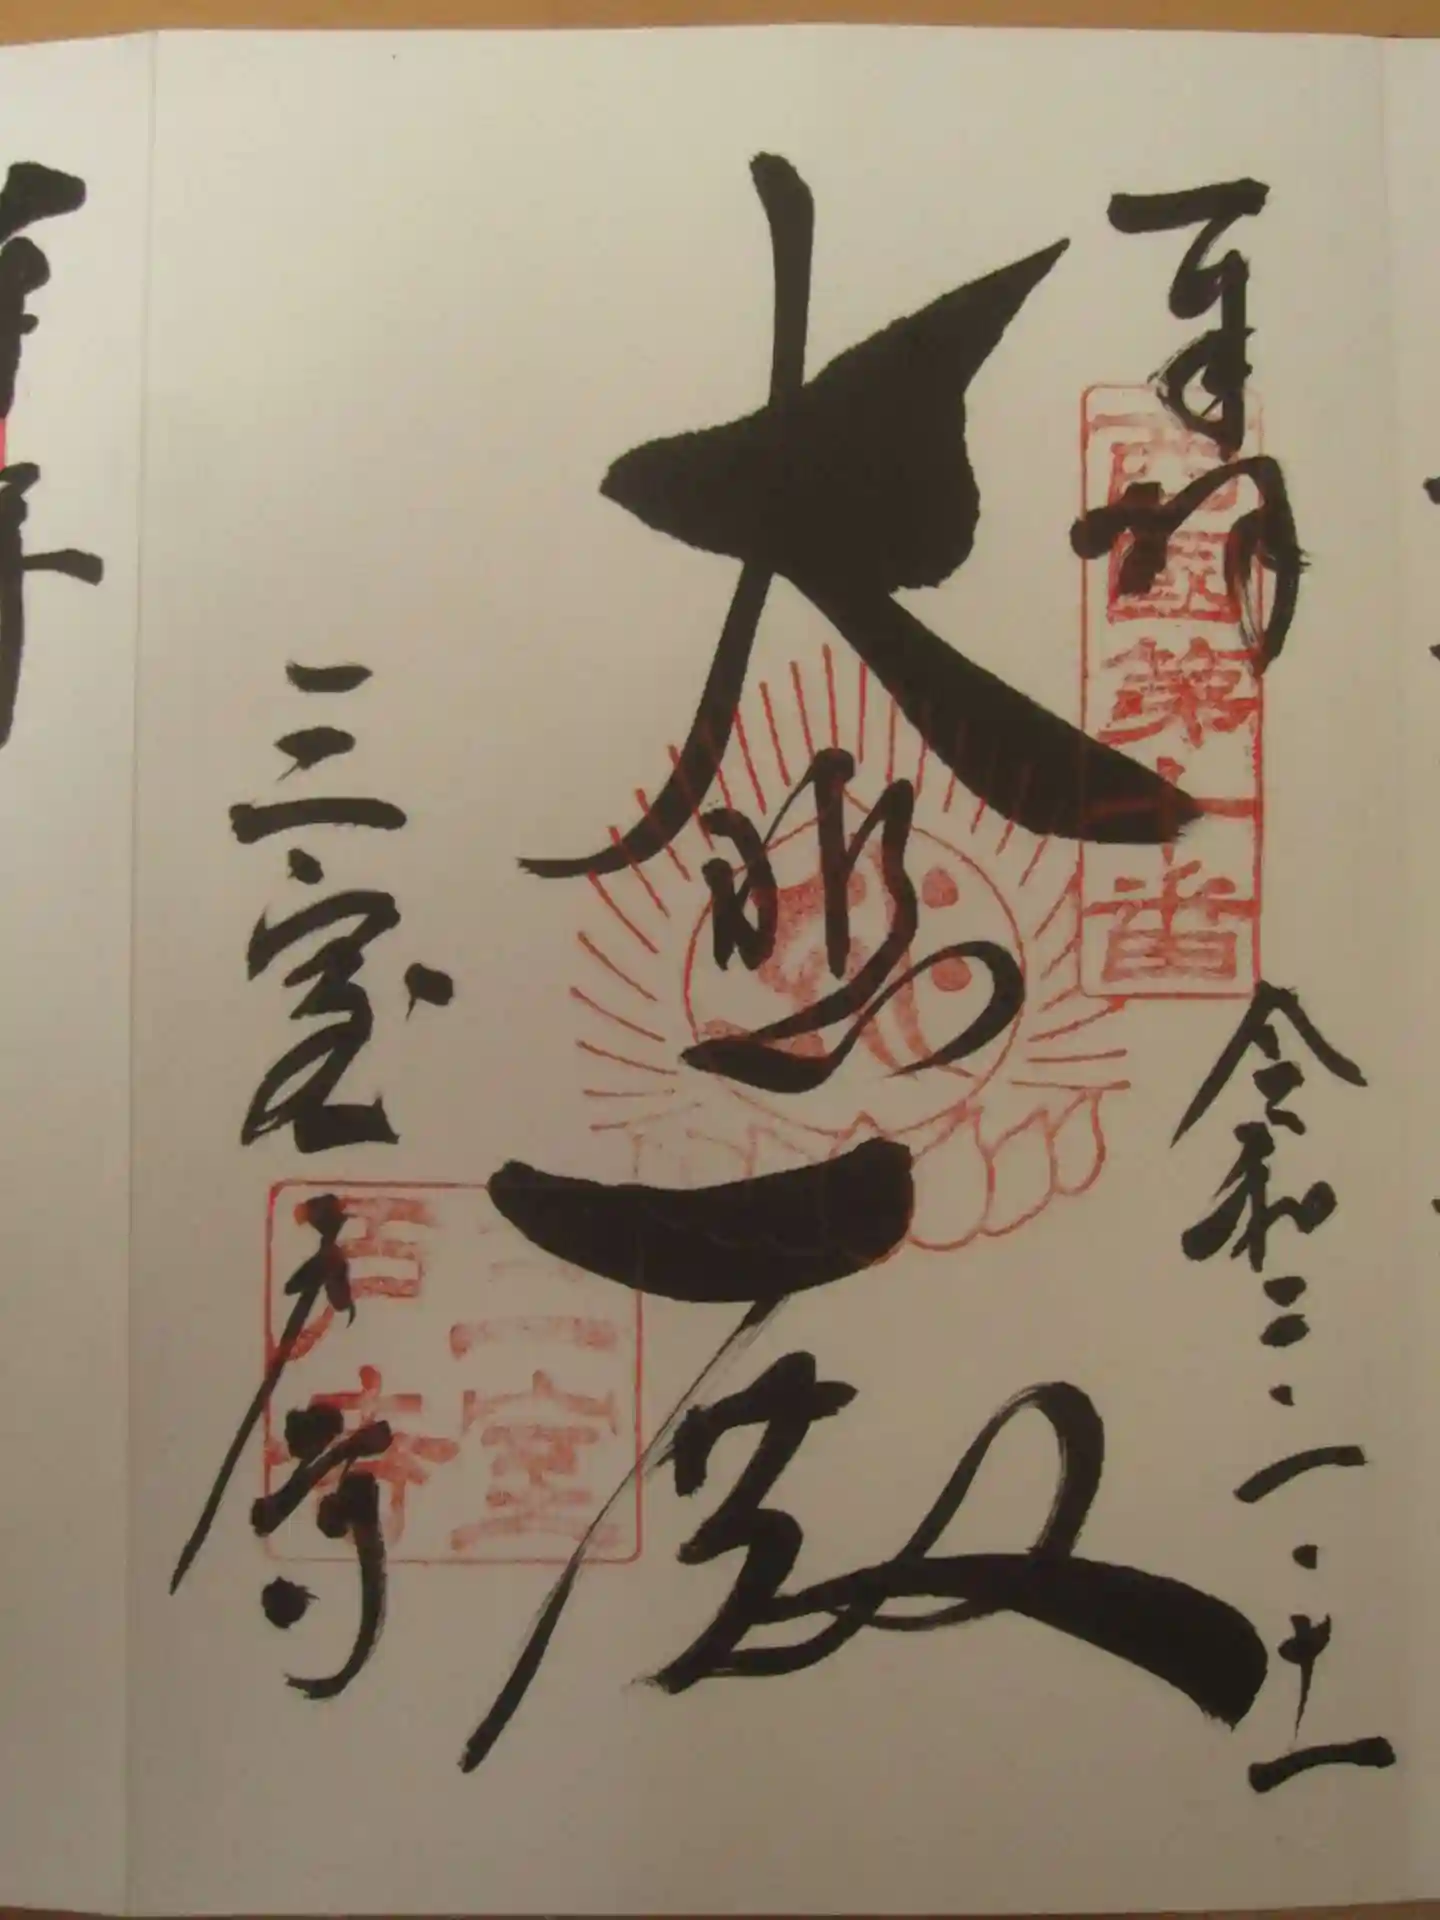 奉拝
西国第十番
令和二・一・十一
大悲殿
三室戸寺
三室
戸寺